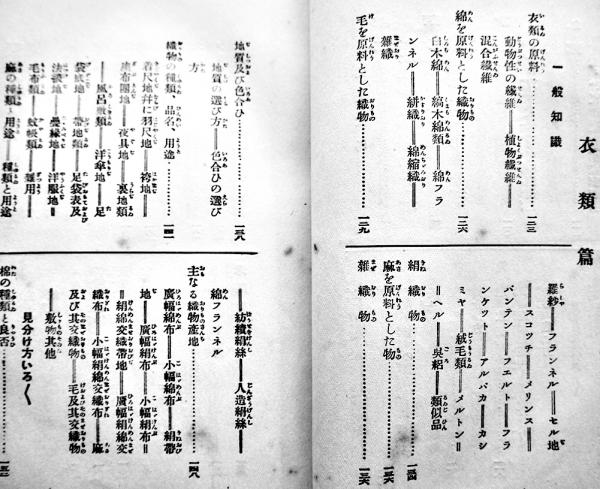 衣類篇
一般知識
衣類の原料……一三
動物性の繊維══植物繊維══
混合繊維
綿を原料とした織物……一二六
白木綿══縞木綿類══綿フラ
ンネル══絣織══綿縮織══
雑織
毛を原料とした織物……一二九
羅紗══フランネル══セル地
══スコッチ══メリンス══
バンテン══フェルト══フラ
ンケット══アルパカ══カシ
ミヤ══絨毛類══メルトン══
══ヘル══呉絽══類似品
絹織物……一三四
麻を原料とした物……一三六
雑織物……一三六
地質及び色合ひ……一三八
地質の選び方══色合ひの選び
方
織物の種類、品名、用途……一四一
着尺地并に羽尺地══袴地══
座布團地══夜具地══裏地類
══風呂敷類══洋傘地══足
袋底地══帯地類══足袋表及
法被地══疊縁地══洋服地══
毛布類══蚊帳類══雑用
麻の種類、用途 種類と用途
══紡績絹絲══人造絹絲══
綿フランネル
主なる織物產地……一四八
廣幅綿布══小幅綿布══絹帯
地══廣幅絹布══小幅絹布══
══絹綿交織帯地══廣幅絹綿交
織布══小幅絹綿交織布══麻
及び其交織物══毛及其交織物
══敷物其他
見分け方いろ〱
棉の種類と良否……一五二